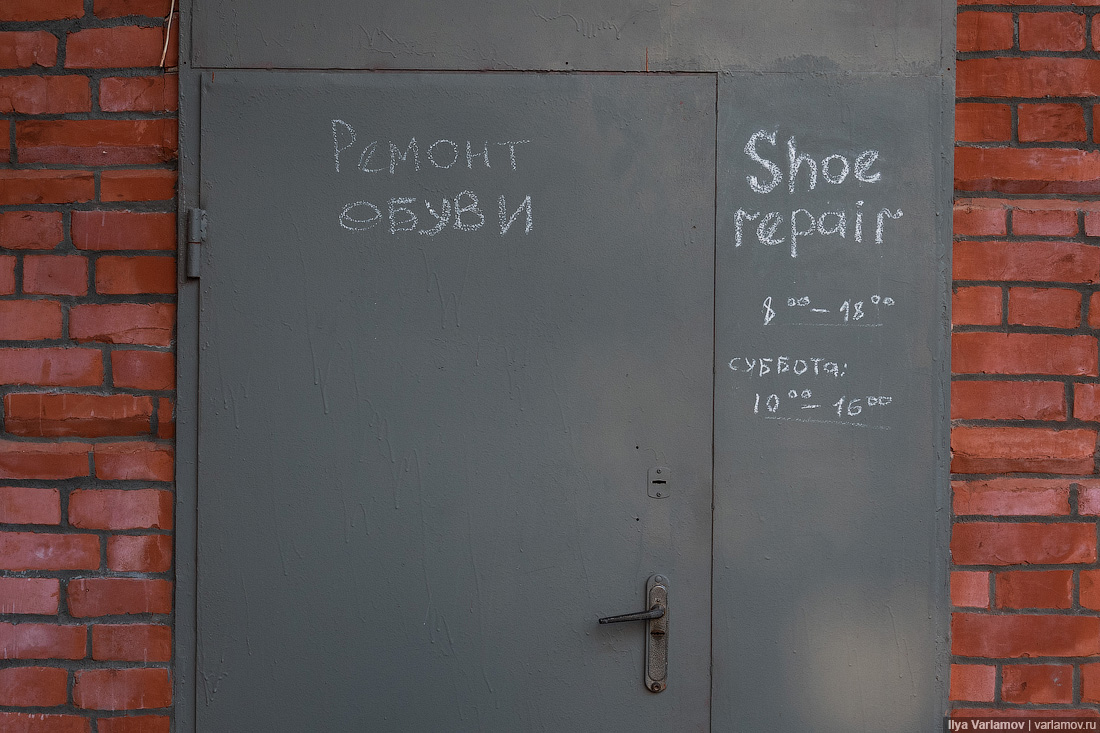 Ремонт
ОБУВИ
Shoe
repair
8⁰⁰ – 18⁰⁰
суббота:
10⁰⁰ – 16⁰⁰
Ilya Varlamov | varlamov.ru